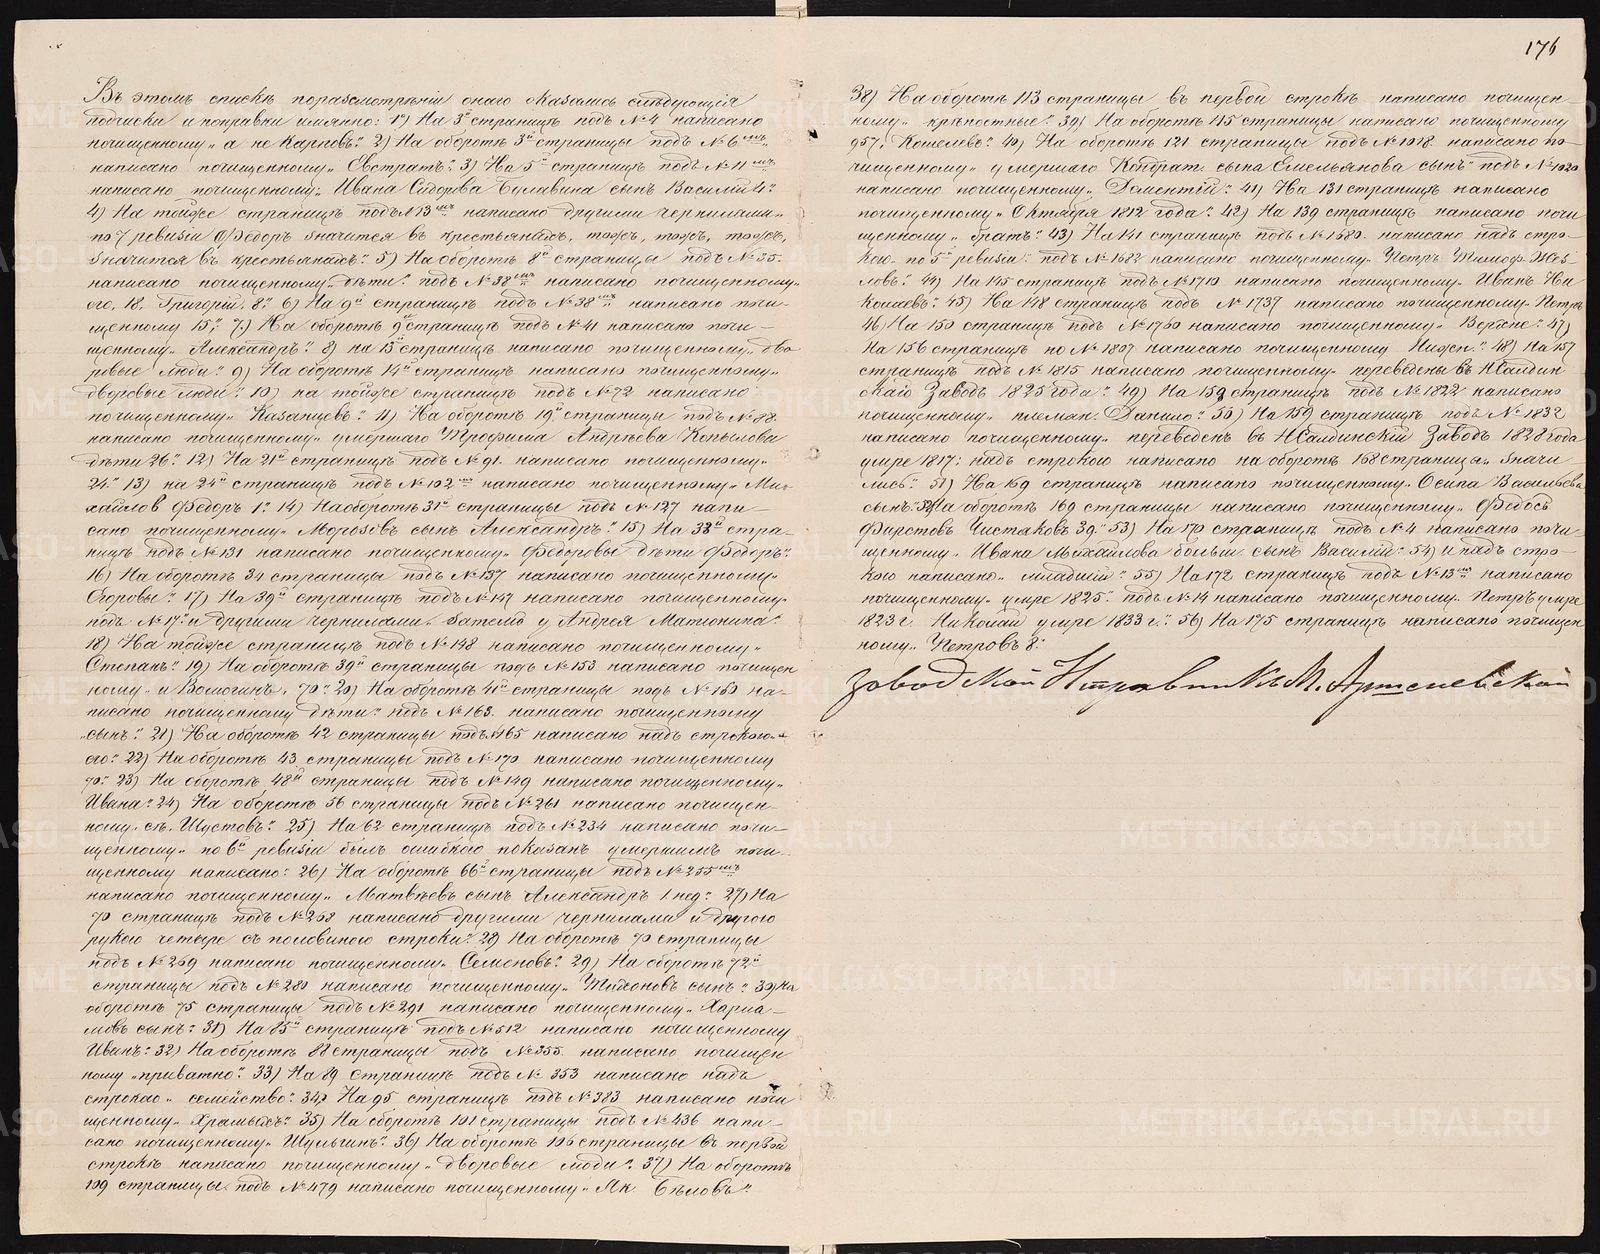 Въ этомъ спискѣ по разсмотрѣніи онаго оказались слѣдующія
подчистки и поправки имянно: 1) На 3й страницѣ подъ № 4 написано
почищенному „а не Карповъ". 2) На оборотѣ 3й страницы подъ № 6мъ
написано почищенному „Евстратъ". 3) На 5й страницѣ подъ № 11мъ
написано почищенному „Ивана Сидорова Булавина сынъ Василій 4".
4) На той же страницѣ подъ № 13мъ написано другими чернилами „
по 7 ревизіи Ѳедоръ значится въ крестьянахъ, тожъ, тожъ, тожъ,
значится въ крестьянахъ". 5) На оборотѣ 8й страницы подъ № 35.
написано почищенному „дѣти" подъ № 38мъ написано почищенному „
его. 18. Григорій. 8". 6) На 9й страницѣ подъ № 38мъ написано почи-
щенному 15". 7) На оборотѣ 9й страницѣ подъ № 41 написано почи-
щенному „Александръ". 8) на 13й страницѣ написано почищенному „дво
ровые люди". 9) На оборотѣ 14й страницѣ написано почищенному „
дворовые люди". 10) на той же страницѣ подъ № 72 написано
почищенному „Казанцевъ". 11) На оборотѣ 19й страницы подъ № 88
написано почищенному „умершаго Трофима Андрѣева Копылова
дѣти 26". 12) На 21й страницѣ подъ № 91. написано почищенному „
24." 13) на 24й страницѣ подъ № 102мъ написано почищенному „Ми-
хайлов Ѳедоръ 1". 14) На оборотѣ 31й страницы подъ № 127 напи-
сано почищенному „Морозовъ сынъ Александръ". 15) На 33й стра-
ницѣ подъ № 131 написано почищенному „Ѳедоровы дѣти Ѳедоръ".
16) На оборотѣ 34 страницы подъ № 137 написано почищенному „
Егоровы". 17) На 39й страницѣ подъ № 147 написано почищенному „
подъ № 17" и другими чернилами „Затемъ у Андрея Матюнина".
18) На той же страницѣ подъ № 148 написано почищенному „
Степанъ". 19) На оборотѣ 39й страницы подъ № 153 написано почищен
ному „и Вологинъ. 70". 20) На оборотѣ 41й страницы подъ № 160 на-
писано почищенному дѣти" подъ № 163. написано почищенному
„сынъ". 21) На оборотѣ 42 страницы подъ № 165 написано надъ строкою „
его". 22) На оборотѣ 43 страницы подъ № 170 написано почищенному
70". 23) На оборотѣ 48й страницы подъ № 149 написано почищенному „
Ивана". 24) На оборотѣ 56 страницы подъ № 261 написано почищен-
ному „съ. Шустовъ". 25) На 62 страницѣ подъ № 234 написано почи-
щенному „по 6й ревизіи былъ ошибкою показанъ умершимъ почи-
щенному написано". 26) На оборотѣ 66й страницы подъ № 255мъ
написано почищенному „Матвѣевъ сынъ Александръ 1 нед". 27) На
70 страницѣ подъ № 268 написано другими чернилами и другою
рукою четыре съ половиною строки". 28) На оборотѣ 70 страницы
подъ № 269 написано почищенному „Семеновъ". 29) На оборотѣ 72й
страницы подъ № 280 написано почищенному „Тихоновъ сынъ". 30) На
оборотѣ 75 страницы подъ № 291 написано почищенному „Харла-
мовъ сынъ". 31) На 85й страницѣ подъ № 512 написано почищенному
Иванъ". 32) На оборотѣ 88 страницы подъ № 355. написано почищен
ному „приватно". 33) На 89 страницѣ подъ № 353 написано надъ
строкою „семейство". 34) На 95 страницѣ подъ № 383 написано почи
щенному „Храмыхъ". 35) На оборотѣ 101 страницы подъ № 436 напи-
сано почищенному „Шульгинъ". 36) На оборотѣ 106 страницы въ первой
строкѣ написано почищенному „дворовые люди". 37) На оборотѣ
109 страницы подъ № 479 написано почищенному „Як. Бѣловъ".
176
38) На оборотѣ 113 страницы въ первой строкѣ написано почищен-
ному „крѣпостные". 39) На оборотѣ 115 страницы написано почищенному
957. Кошелевъ". 40) На оборотѣ 121 страницы подъ № 1018 написано по-
чищенному „умершаго Кондрат. сына Емельянова сынъ" подъ № 1020
написано почищенному „Дементій". 41) На 131 страницѣ написано
почищенному „Октября 1812 года". 42) На 139 страницѣ написано почи
щенному „братъ". 43) На 141 страницѣ подъ № 1680. написано надъ стро-
кою „по 5й ревизіи" подъ № 1682 написано почищенному „Петръ Тимоф.
ловъ". 44) На 145 страницѣ подъ № 1710 написано почищенному „Иванъ Ни
колаевъ". 45) На 148 страницѣ подъ № 1737 написано почищенному „Петръ
46) На 150 страницѣ подъ № 1760 написано почищенному „Верхне". 47)
На 156 страницѣ по № 1807 написано почищенному Нижн." 48) На 157
страницѣ подъ № 1815 написано почищенному „переведены въ НСалдин
скій Заводъ 1825 года". 49) На 159 страницѣ подъ № 1822 написано
почищенному „племян. Данило". 50) На 159 страницѣ подъ № 1832
написано почищенному „переведенъ въ НСалдинскій Заводъ 1828 года
умре 1817" надъ строкою написано на оборотѣ 168 страницы „значи
лись". 51) На 169 страницѣ написано почищенному „Осипа Васильева
сынъ". 52) На оборотѣ 169 страницы написано почищенному „Федосъ
Фирстовъ Чистяковъ 39". 53) На 170 страницѣ подъ № 4 написано почи-
щенному „Ивана Михайлова больш. сынъ Василій". 54) и надъ стро-
кою написано „младшій". 55) На 172 страницѣ подъ № 13мъ написано
почищенному „умре 1825." подъ № 14 написано почищенному „Петръ умре
1823 г. Николай умре 1833 г.". 56) На 175 страницѣ написано почищен
ному „Петровъ 8."
Заводской Исправникъ М.